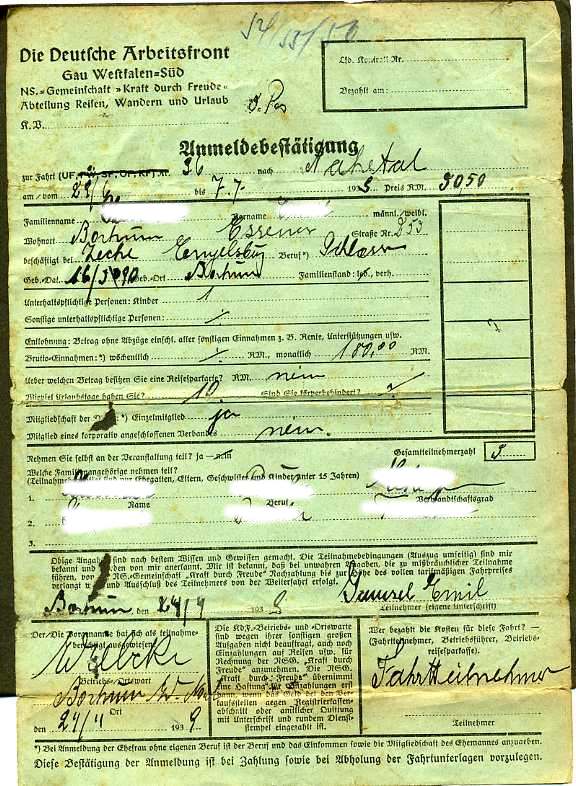 52/55/56
Die Deutsche Arbeitsfront
Gau Westfalen-Süd
NS.-Gemeinschaft »Kraft durch Freude«
Abteilung Reisen, Wandern und Urlaub
K.V.
Lfd. Kontroll Nr.
Bezahlt am:
Anmeldebestätigung
zur Fahrt (UF, FW, SF, OF, KF) Nr. 36 nach Nahetal
am/vom 29/6 bis 7.7. 193 Preis RM. 3050
Familienname Vorname männl./weibl.
Wohnort Bochum Essener Straße Nr. 253
beschäftigt bei Zeche Engelsburg Beruf*) Schlosser
Geb.-Dat. Geb.-Ort Bochum Familienstand: led., verh.
Unterhaltspflichtige Personen: Kinder 1
Sonstige unterhaltspflichtige Personen: /
Entlohnung: Betrag ohne Abzüge einschl. aller sonstigen Einnahmen z. B. Rente, Unterstützungen usw.
Brutto-Einnahmen:*) wöchentlich / RM. monatlich 180,00 RM.
Ueber welchen Betrag besitzen Sie eine Reisesparkarte? RM. nein
Wieviel Urlaubstage haben Sie? 10 Sind Sie körperbehindert? /
Mitgliedschaft der *) Einzelmitglied ja
Mitglied eines korporativ angeschlossenen Verbandes nein.
Nehmen Sie selbst an der Veranstaltung teil? ja — nein Gesamtteilnehmerzahl
Welche Familienangehörige nehmen teil?
(Teilnahme nur Ehegatten, Eltern, Geschwister und Kinder unter 15 Jahren)
1.
Name Beruf Verwandtschaftsgrad
2.
3.
Obige Angaben sind nach bestem Wissen und Gewissen gemacht. Die Teilnahmebedingungen (Auszug umseitig) sind mir
bekannt und werden von mir anerkannt. Mir ist bekannt, daß bei unwahren Angaben, die zu mißbräuchlicher Teilnahme
führen, von NS.-Gemeinschaft „Kraft durch Freude" Nachzahlung bis zur Höhe des vollen tarifmäßigen Fahrpreises
verlangt und Ausschluß des Teilnehmers von der Weiterfahrt erfolgt.
Bochum, den 24/4 193 Emil
Teilnehmer (eigene Unterschrift)
Der/Die Vorgenannte hat sich als teilnahme-
berechtigt ausgewiesen:
Betriebs-Ortswart
Bochum
Ort
den 24/4 1939
Die KdF.-Betriebs- und -Ortswarte
sind wegen ihrer sonstigen großen
Aufgaben nicht beauftragt, auch noch
Einzahlungen auf Reisen usw. für
Rechnung der NSG. „Kraft durch
Freude" anzunehmen. Die NSG.
„Kraft durch Freude" übernimmt
eine Haftung für Einzahlungen erst
dann, wenn das Geld bei den Ver-
kaufsstellen gegen Registrierkassen-
abschnitt oder amtlicher Quittung
mit Unterschrift und rundem Dienst-
stempel eingezahlt ist.
Wer bezahlt die Kosten für diese Fahrt? —
(Fahrtteilnehmer, Betriebsführer, Betriebs-
reisesparkasse).
Fahrtteilnehmer
Teilnehmer
*) Bei Anmeldung der Ehefrau ohne eigenen Beruf ist der Beruf und das Einkommen sowie die Mitgliedschaft des Ehemannes anzugeben.
Diese Bestätigung der Anmeldung ist bei Zahlung sowie bei Abholung der Fahrtunterlagen vorzulegen.